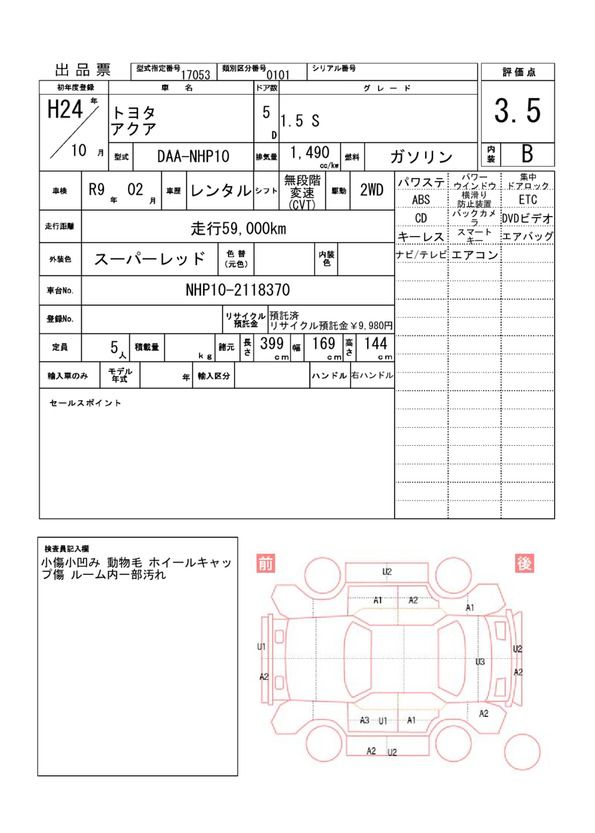 出品票
型式指定番号 17053 類別区分番号 0101 シリアル番号
評価点
3.5
初年度登録 車名 ドア数 グレード
H24年
トヨタ
アクア
5D
1.5 S
10月
型式 DAA-NHP10 排気量 1,490 cc/kw 燃料 ガソリン
内装 B
車検 R9年 02月 車歴 レンタル シフト 無段階変速(CVT) 駆動 2WD
走行距離 走行59,000km
外装色 スーパーレッド 色替(元色) 内装色
車台No. NHP10-2118370
登録No. リサイクル預託金 預託済
リサイクル預託金￥9,980円
定員 5人 積載量 kg 諸元 長さ 399cm 幅 169cm 高さ 144cm
輸入車のみ モデル年式 年 輸入区分 ハンドル 右ハンドル
パワステ パワーウインドウ 集中ドアロック
ABS 横滑り防止装置 ETC
CD バックカメラ DVDビデオ
キーレス スマートキー エアバッグ
ナビ/テレビ エアコン
セールスポイント
検査員記入欄
小傷小凹み 動物毛 ホイールキャッ
プ傷 ルーム内一部汚れ
前 後
U2
A1 A2 A1
U1 U3 U2
A2 A2
A3 U1 A1 A2
A2 U2